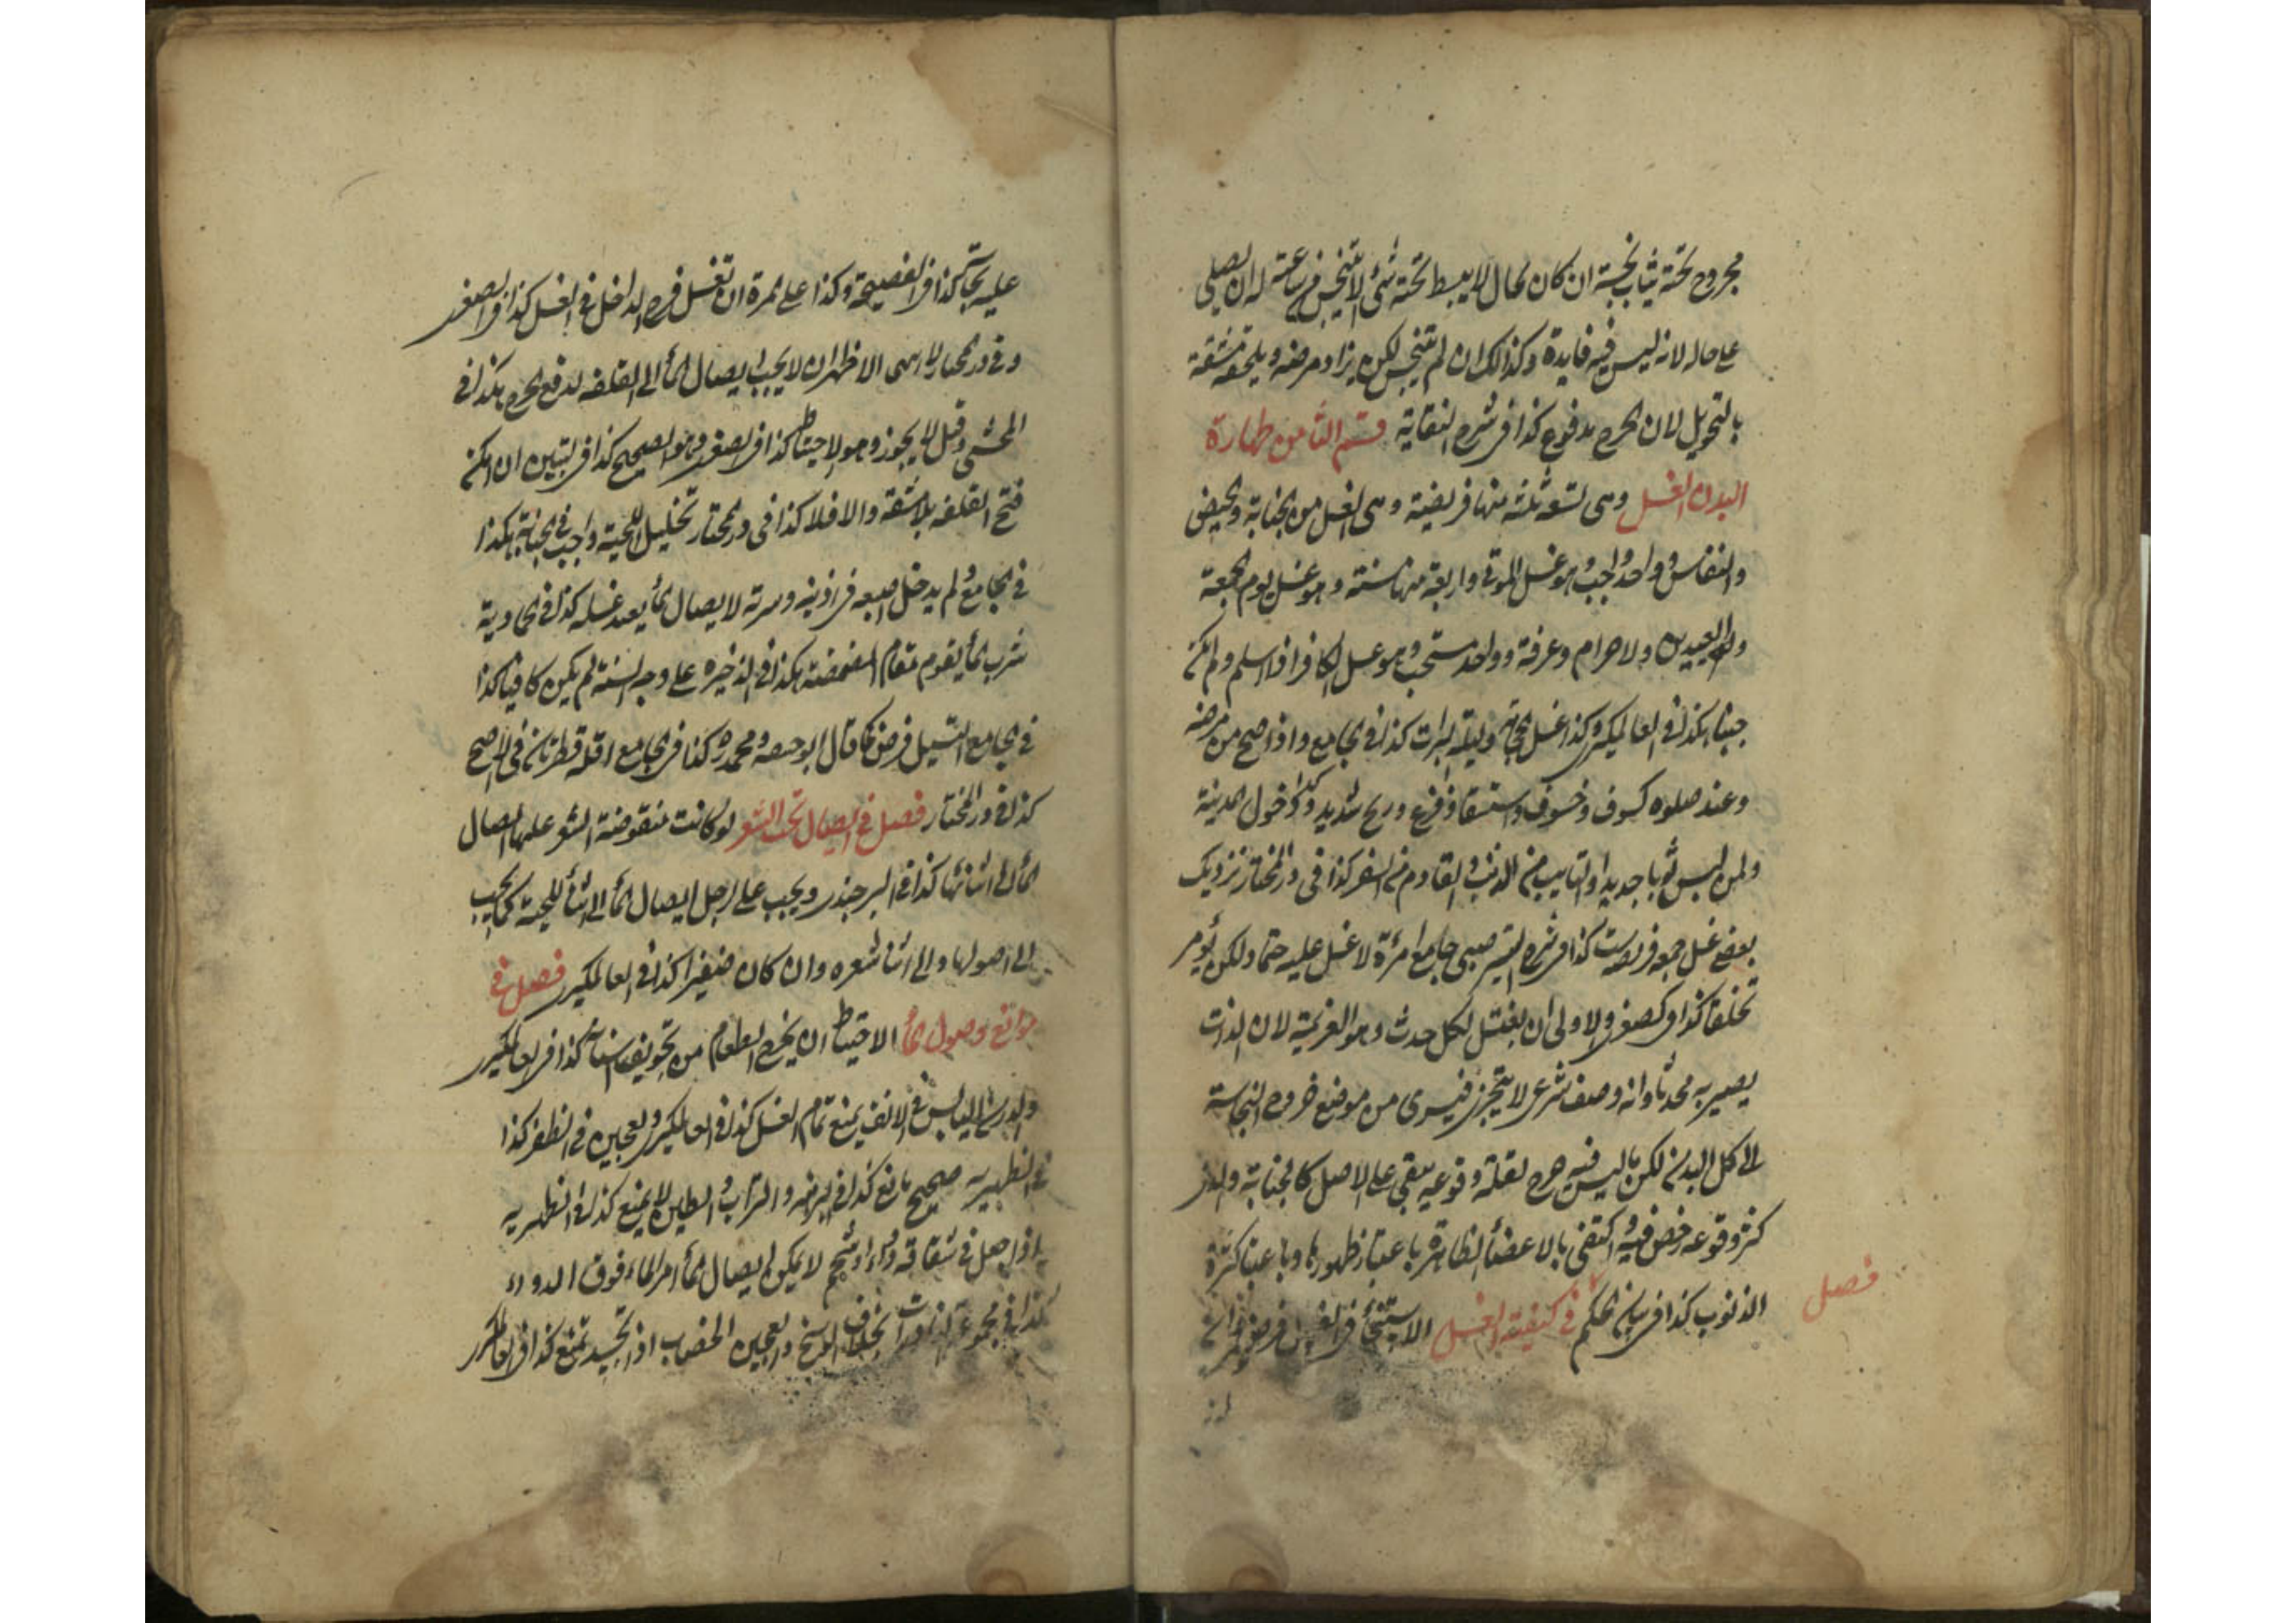 مجروح تحته ثياب نجسة ان كان بحال لا يبسط تحته شئ الا تنجس من ساعته له ان يصلي
على حاله لانه ليس فيه فايدة وكذالك ان لم تنجس لكن يزاد مرضه ويلحقه مشقة
بالتحويل لان الحرج مدفوع كذا فى شرح النقاية قسم الثامن طهارة
البدن الغسل وهى تسعه ثلثه منها فريضة وهى الغسل من الجنابة والحيض
والنفاس وواحد واجب وهو غسل الموتى واربعة منها سنة وهو غسل يوم الجمعة
والعيدين والاحرام وعرفة وواحد مستحب وهو غسل الكافر اذا اسلم ولم يكن
جنبا هكذا فى العالمكيرى وكذا غسل وليلة البرات كذا فى الجامع واذا صح من مرضه
وعند صلوه كسوف وخسوف واستسقا وفزع وريح شديد وكذا دخول المدينة
ولمن لبس ثوبا جديدا والتايب من الذنب والقادم من السفر كذا فى در المختار نزديك
بعض غسل جمعه فريضت كذا فى شرح صبى جامع امرأة لا غسل عليه حتما ولكن يؤمر
تخلقا كذا فى الصغير والاولى ان يغتسل لكل حدث وهو العزيمة لان الذات
يصير به محدثا وانه وصف شرعى لا يتجزى فيسرى من موضع خروج النجاسة
الى كل البدن لكن ما ليس فيه حرج لقلة وقوعه يبقى على الاصل كالجنابة والذى
كثر وقوعه رخص فيه واكتفى بالاعضأ الظاهرة باعتبار ظهورها وباعتبار كثرة
فصل
الذنوب كذا فى بيان الحكم فى كيفيته الغسل الاستنجأ فى الغسل فرض
عليه نجاسة كذا فى الفصيحة وكذا على المرة ان تغسل فرج الداخل فى الغسل كذا فى الصغير
وفى در المختار الاظهر ان لا يجب ايصال المأ الى القلفه لدفع الحرج هكذا فى
وقيل لا يجوز وهو الاحتياط كذا فى الصغير وهو الصحيح كذا فى التبيين ان امكن
فتح القلفه بلا مشقه والا فلا كذا فى در المختار تخليل اللحية واجب فى الجنابة هكذا
فى الجامع ولم يدخل اصبعه فى اذنيه وسرته لا يصال المأ يعيد غسله كذا فى
شرب المأ يقوم مقام المضمضه هكذا فى الذخيره على وجه السنة لم يكن كافيا كذا
فى الجامع التسيل فرض كما قال ابو حنيفه ومحمد كذا فى الجامع اقله قطرتان فى الاصح
كذا فى در المختار فصل فى ايصال تحت الشعر لو كانت منقوضة الشعر عليها ايصال
المأ الى اثنائها كذا فى البرجندى ويجب على الرجل ايصال المأ الى اثنأ اللحية كما يجب
الى اصولها والى اثنا شعره وان كان ضفيرا كذا فى العالمكيرى فصل فى
موانع وصول المأ الاحتياط ان يخرج الطعام من تجويف اسنانه كذا فى العالمكيرى
والدرن اليابس فى الانف يمنع تمام الغسل كذا فى العالمكيرى والعجين فى الظفر كذا
فى الظهيريه صحيح مانع كذا فى والتراب والطين لا يمنع كذا فى الظهيريه
اذا جعل فى شقاقه دواء او شحم لا يمكن ايصال المأ امر الماء فوق الدواء
كذا فى مجموعة بخلاف الوسخ والعجين الخضاب اذا تجسد تمنع كذا فى العالمكيرى